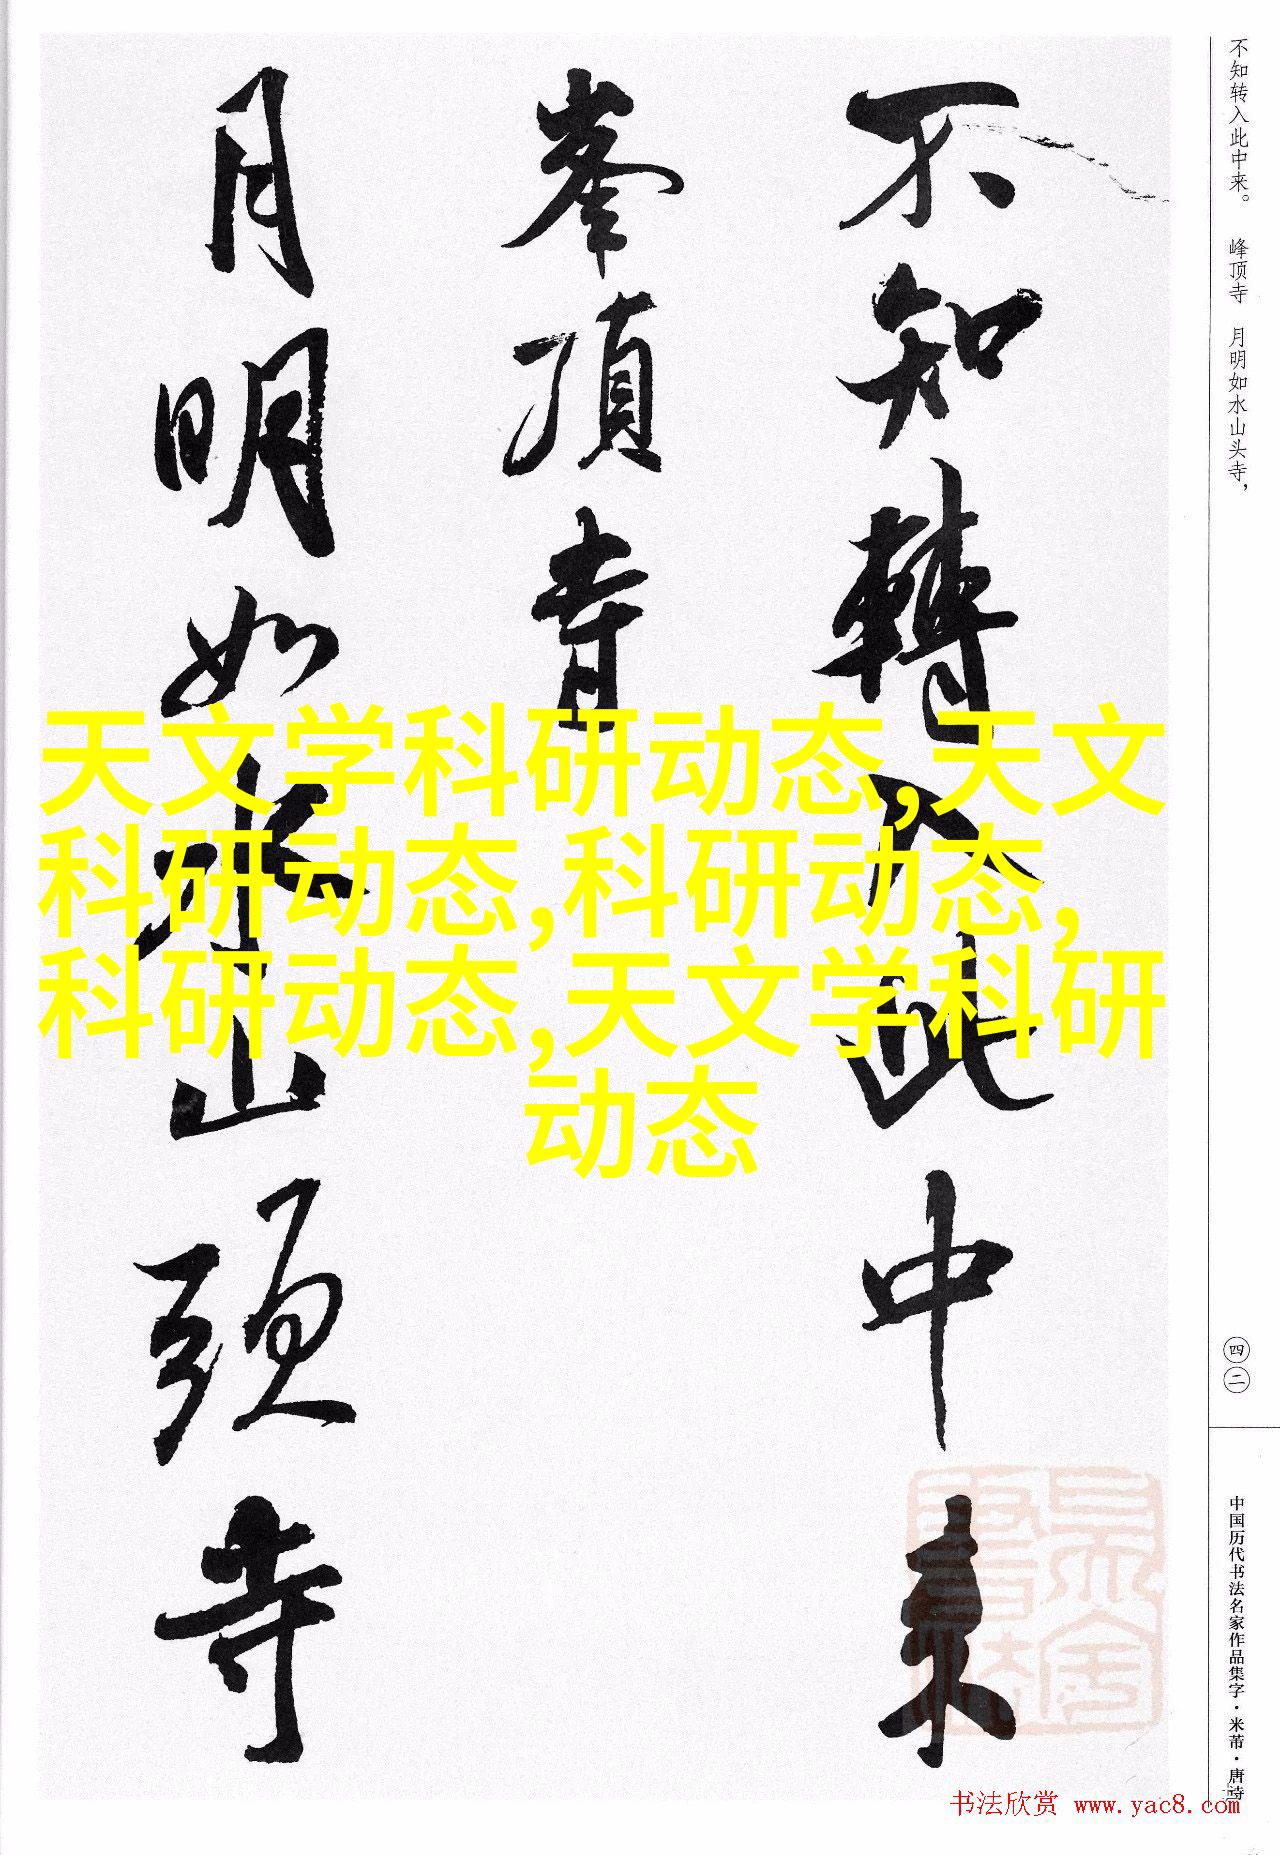 不知转入此中来。 峰顶寺 月明如水山头寺，
不知轉入此中來
峯頂寺
月明如水山頭寺
天文学科研动态,天文
科研动态,科研动态,
科研动态,天文学科研
动态
四二
中国历代书法名家作品集字·米芾·唐诗
书法欣赏 www.yac8.com